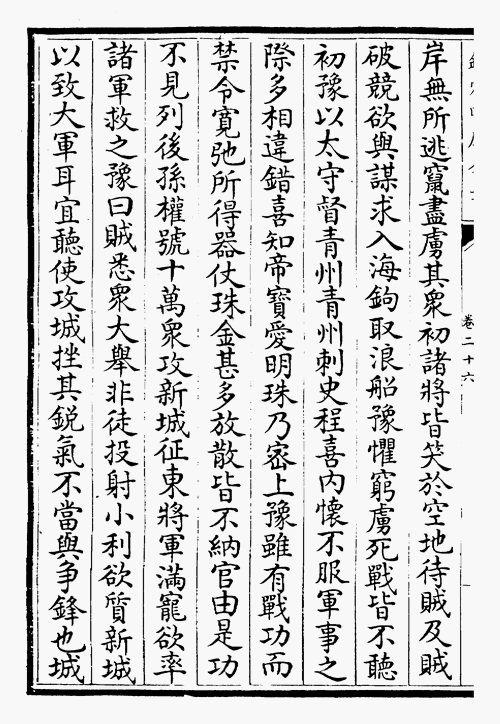 岸無所逃竄盡虜其衆初諸將皆笑於空地待賊及賊
破競欲與謀求入海鉤取浪船豫懼窮虜死戰皆不聽
初豫以太守督青州青州刺史程喜内懷不服軍事之
際多相違錯喜知帝寳愛明珠乃宻上豫雖有戰功而
禁令寛弛所得器仗珠金甚多放散皆不納官由是功
不見列後孫權號十萬衆攻新城征東將軍滿寵欲率
諸軍救之豫曰賊悉衆大舉非徒投射小利欲質新城
以致大軍耳宜聽使攻城挫其鋭氣不當與争鋒也城
卷二十六